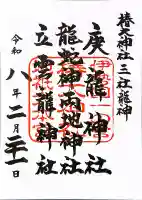 椿大神社 三社龍神
庚龍神社
龍蛇神両地神社
立雲龍神社
令和八年二月二十一日